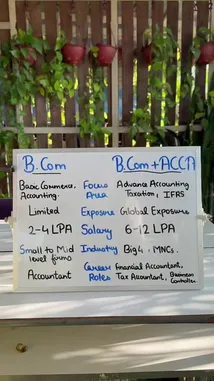 B.Com B.Com+ACCA
Basic Commerce, Focus Advance Accounting
Accounting. Area Taxation, IFRS
Limited Exposure Global Exposure
2-4 LPA Salary 6-12 LPA
Small to Mid Industry Big4, MNCs.
level firms
Accountant Career Financial Accountant,
Roles Tax Accountant, Business
Controller